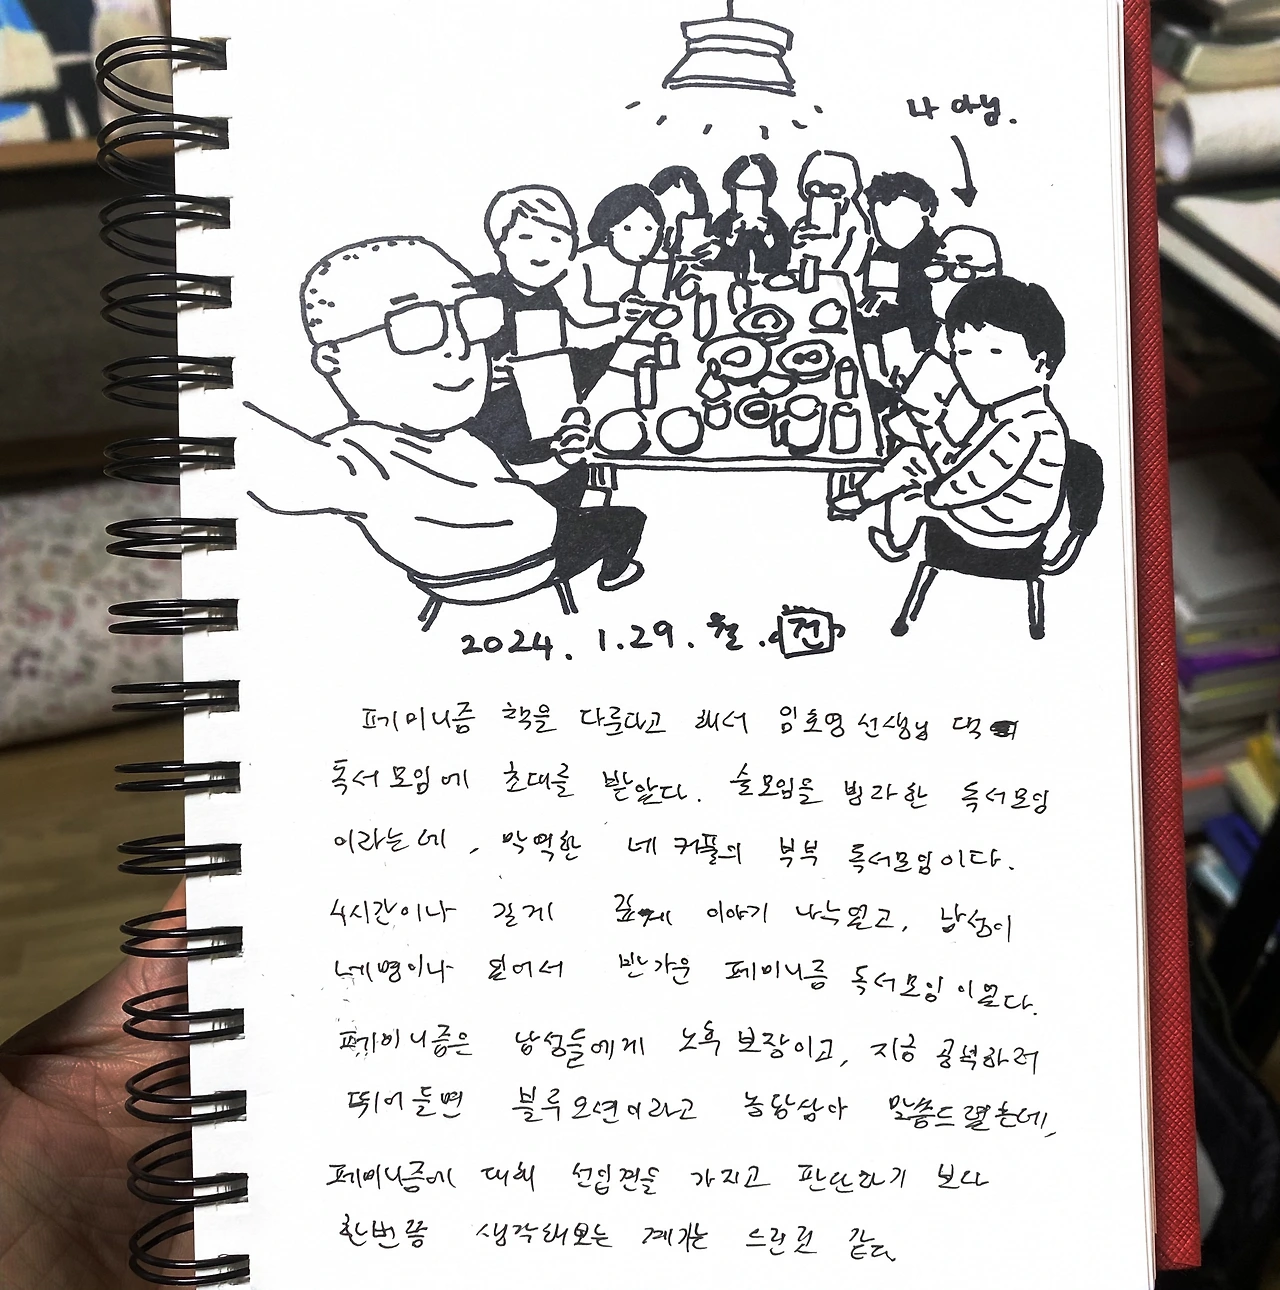 나 아님.
2024. 1. 29. 월. 전
페미니즘 책을 다룬다고 해서 임호영 선생님 댁
독서모임에 초대를 받았다. 술모임을 빙자한 독서모임
이라는데, 막역한 네 커플의 부부 독서모임이다.
4시간이나 길게 깊게 이야기 나누었고, 남성이
네명이나 되어서 반가운 페미니즘 독서모임이었다.
페미니즘은 남성들에게 노후 보장이고, 지금 공부하러
뛰어들면 블루오션이라고 농담삼아 말씀드렸는데,
페미니즘에 대해 선입견을 가지고 판단하기 보다
한번쯤 생각해보는 계기는 드린 것 같다.